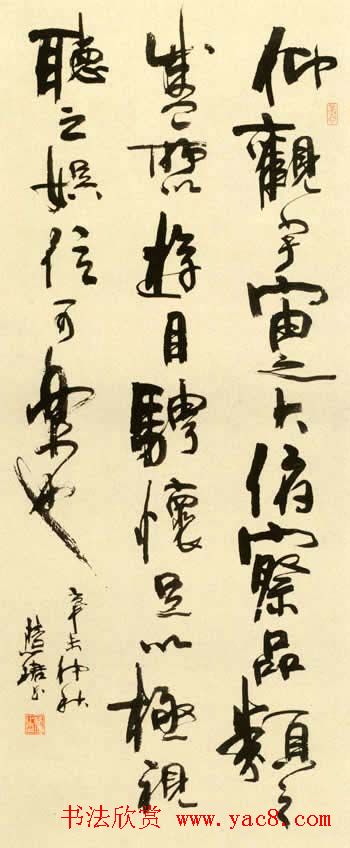 仰觀宇宙之大俯察品類之
盛所以遊目騁懷足以極視
聽之娛信可樂也
辛未仲秋
慧珺书
书法欣赏 www.yac8.com